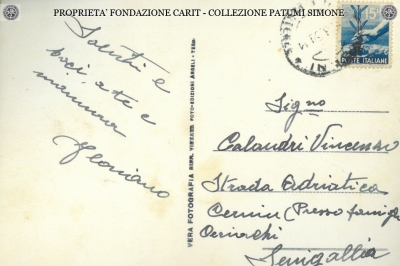 PROPRIETA' FONDAZIONE CARIT - COLLEZIONE PATUMI SIMONE
Saluti e
baci a te e
mamma
Floriano
VERA FOTOGRAFIA RIPR. VIETATA FOTO-EDIZIONI ANGELI - TERNI
15
POSTE ITALIANE
Sig.no
Calandri Vincenzo
Strada Adriatica
(Presso famiglia
Senigallia